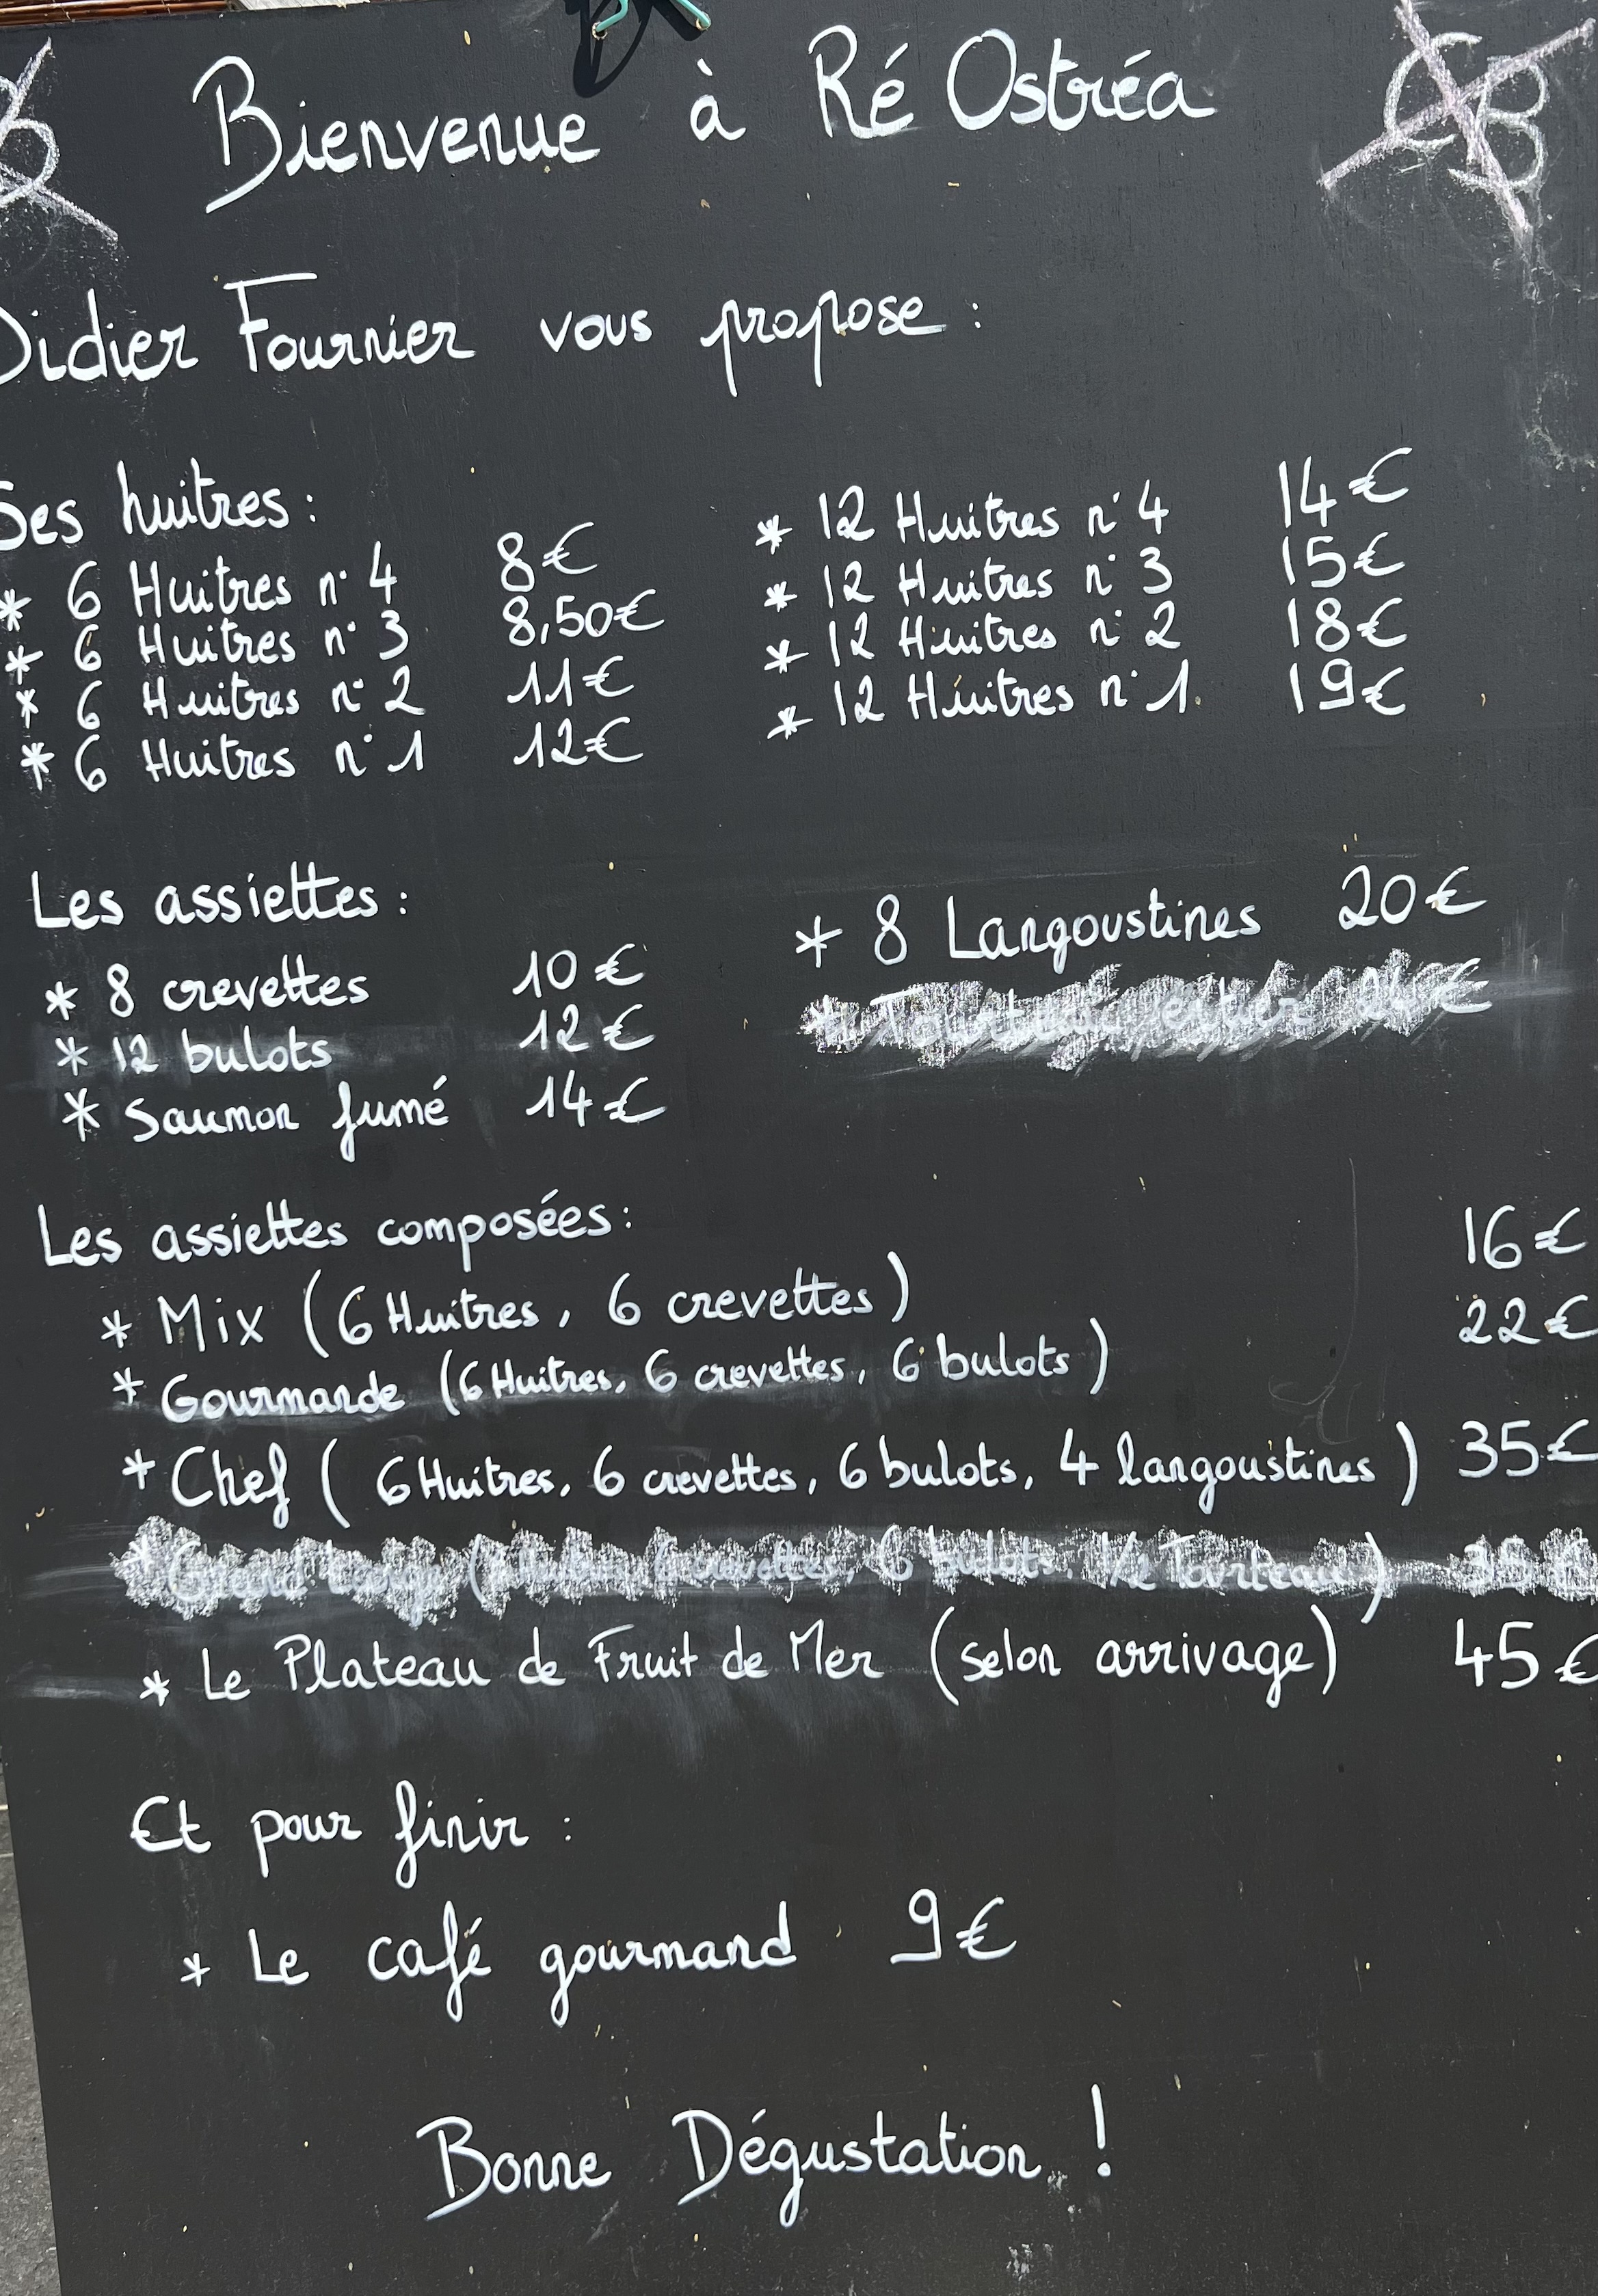 Bienvenue à Ré Ostréa
CB
Didier Fournier vous propose :
Ses huitres :
* 6 Huitres n° 4 8€
* 6 Huitres n° 3 8,50€
* 6 Huitres n° 2 11€
* 6 Huitres n° 1 12€
* 12 Huitres n° 4 14€
* 12 Huitres n° 3 15€
* 12 Huitres n° 2 18€
* 12 Huitres n° 1 19€
Les assiettes :
* 8 crevettes 10€
* 12 bulots 12€
* Saumon fumé 14€
* 8 Langoustines 20€
* Tourteau entier
Les assiettes composées :
* Mix (6 Huitres, 6 crevettes) 16€
* Gourmande (6 Huitres, 6 crevettes, 6 bulots) 22€
* Chef (6 Huitres, 6 crevettes, 6 bulots, 4 langoustines) 35€
* (6 Huitres, 6 crevettes, 6 bulots, 1/2 Tourteau) 35€
* Le Plateau de Fruit de Mer (selon arrivage) 45€
Et pour finir :
* Le café gourmand 9€
Bonne Dégustation !